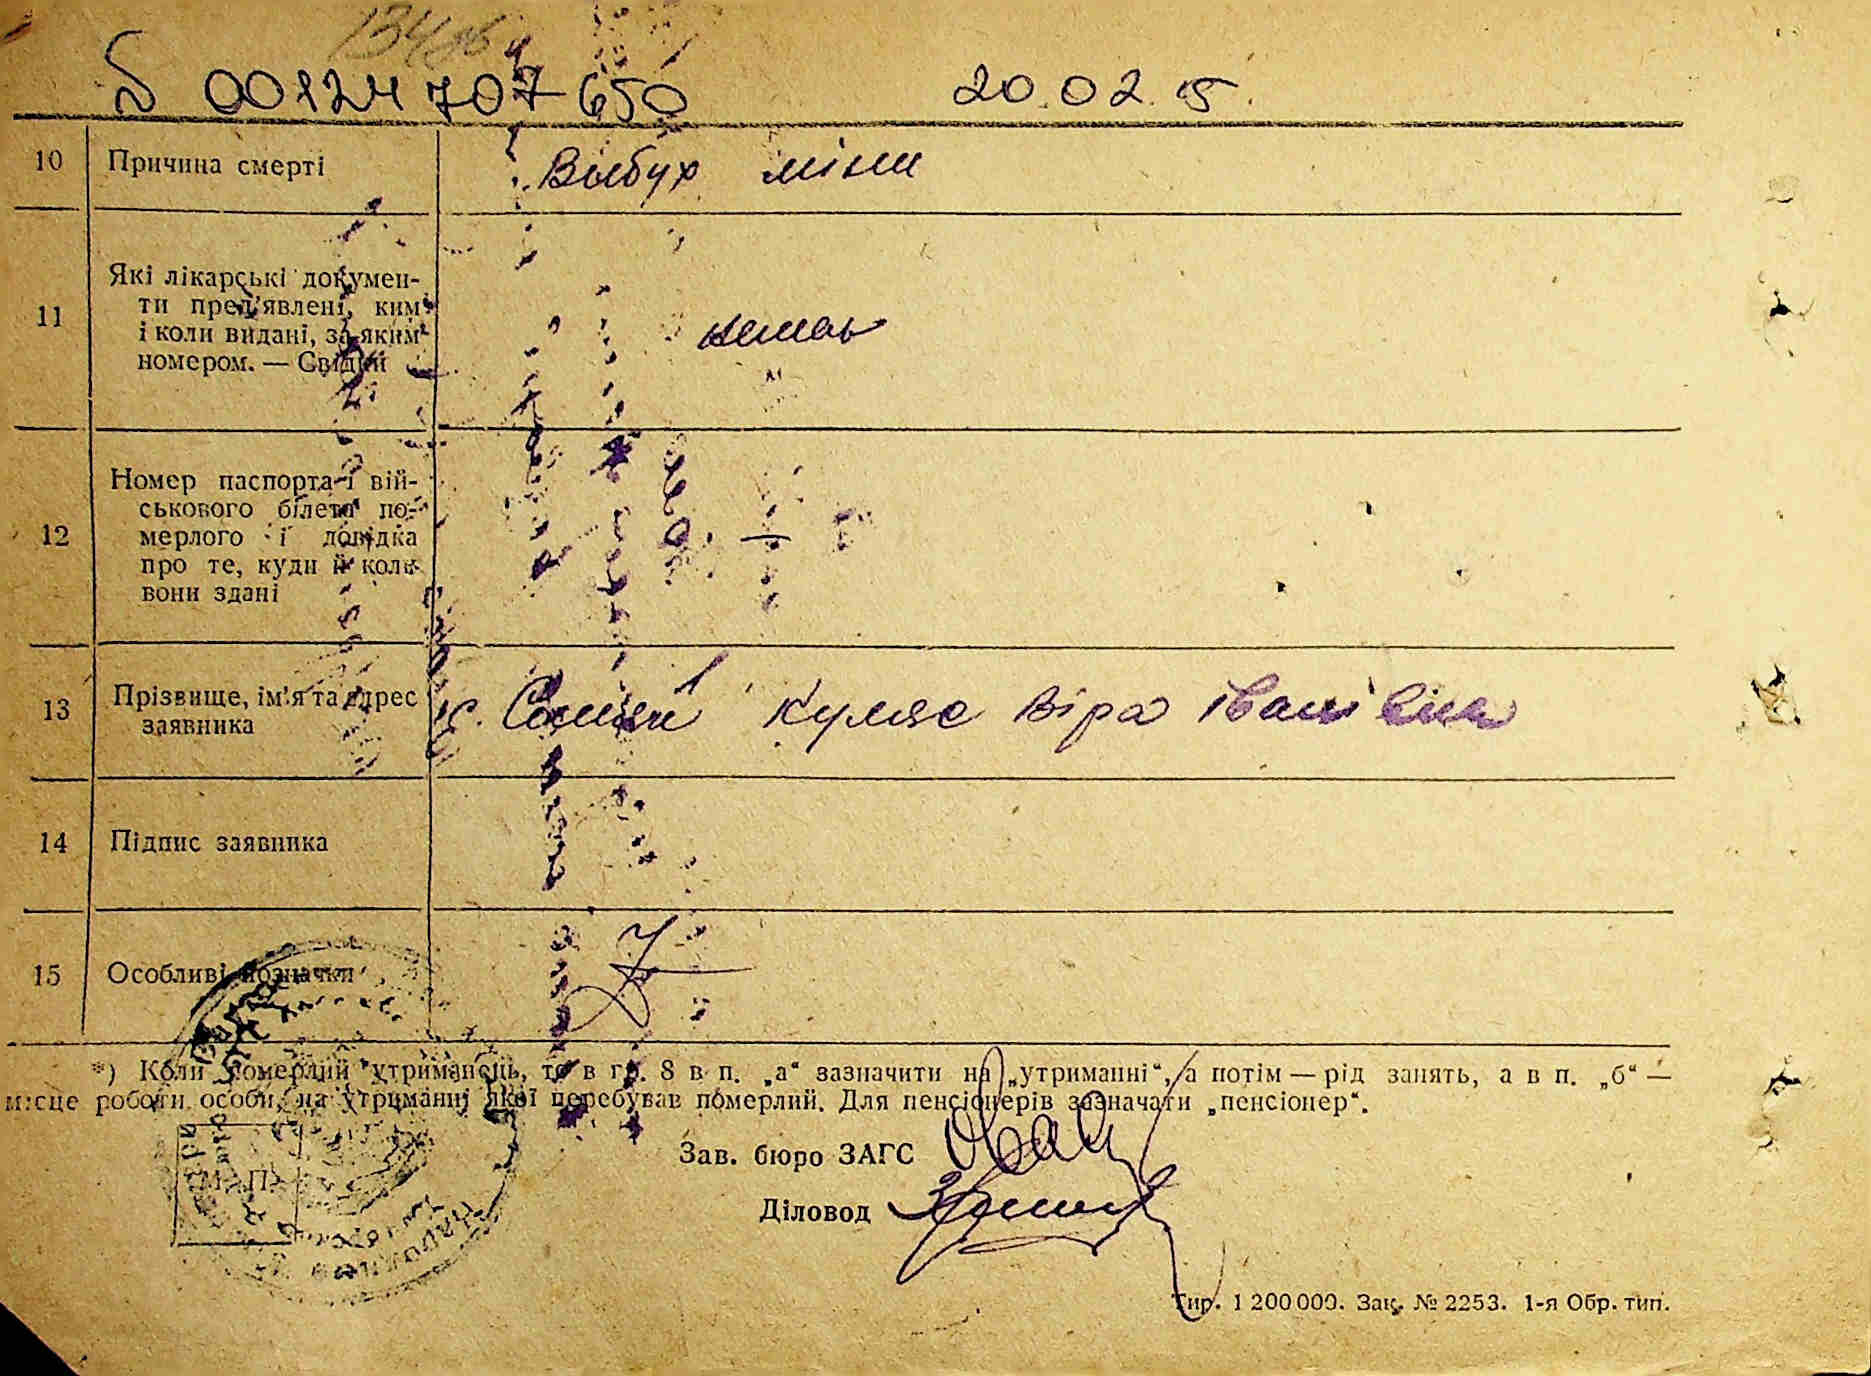 00124707650 20.02.15.
10 Причина смерті Вибух міни
11 Які лікарські докумен-
ти пред'явлені, ким
і коли видані, за яким
номером. — Свідки немає
12 Номер паспорта і вій-
ськового білета по-
мерлого і довідка
про те, куди й коли
вони здані —
13 Прізвище, ім'я та адрес
заявника с. Віра Іванівна
14 Підпис заявника
15 Особливі позначки
*) Коли померлий утриманець, то в гр. 8 в п. „а“ зазначити на „утриманні“, а потім — рід занять, а в п. „б“ —
місце роботи особи, на утриманні якої перебував померлий. Для пенсіонерів зазначати „пенсіонер“.
Зав. бюро ЗАГС
М. П.
Діловод
Тир. 1 200 000. Зак. № 2253. 1-я Обр. тип.